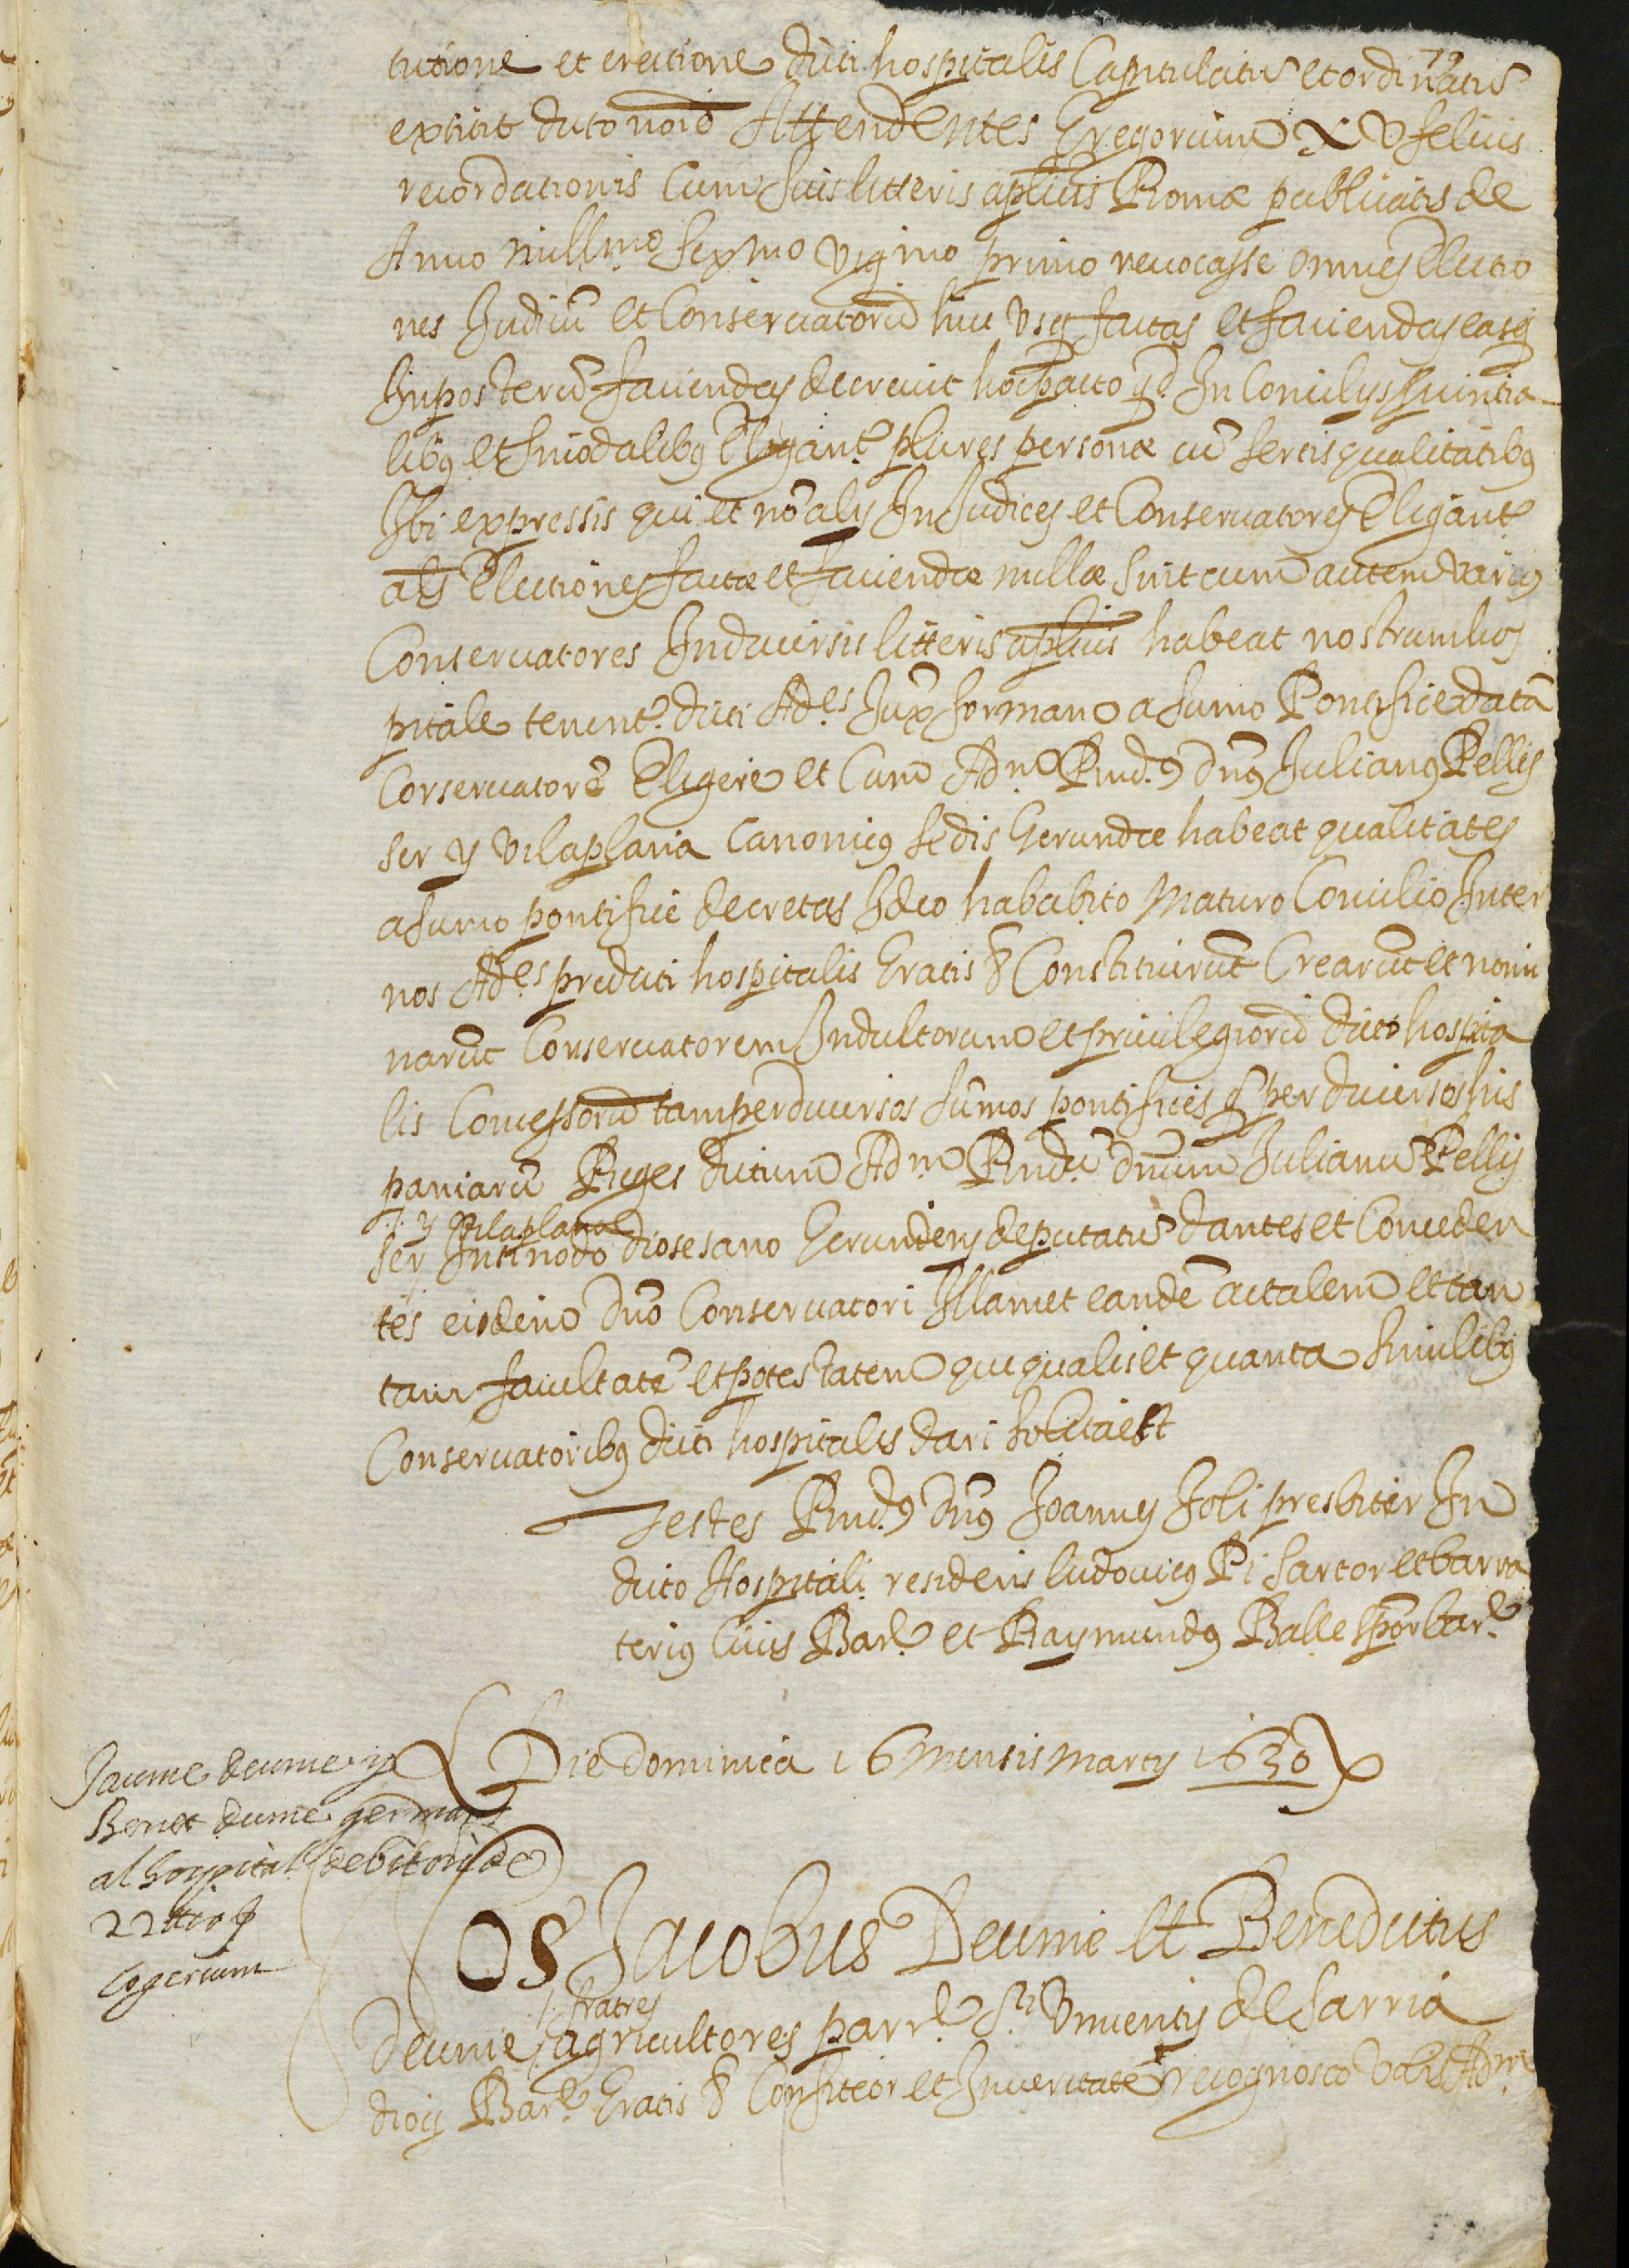 79
tutione et erectione dicti hospitalis Capitulatũ et ordinatũ
extitit dicto noĩe Attendentes Gregorium XV felicis
recordationis Cum suis litteris aplicis Romæ publicatis de
Anno millmo sexmo vigmo primo revocasse omnes Electio
nes Judicũ et Conservatorũ huc usq factas et faciendas easq
Inposterũ faciendas decrevit hoc pacto qd In Conciliis provintia
libus et sinodalibus Eligant.r plures personæ cũ sertis qualitatibus
Ibi expressis qui et nõ alij In Judices et Conservatores Eligant.r
als Electiones factæ et faciendæ nullæ sint cum autem varios
Conservatores In diversis litteris aplicis habeat nostrum hos
pitale tenent.r dicti Ad.es Juxᵃ formam a sumo Pontifice datã
Corservatorẽ Eligere et Cum Adm Rnd.us dnus Julianus Pellis
ser y Vilaplana Canonicus sedis Gerundæ habeat qualitates
a sumo pontifice decretas Ideo hababito maturo Concilio Inter
nos Ad.es predicti hospitalis Gratis & Constituerũt Crearũt et nomi
narũt Conservatorem Indultorum et privilegiorũ dicto hospita
lis Concessorũ tam per diversos sũmos pontifices q per diversos his
paniarũ Reges dictum Adm Rnd.ũ dnum Julianũ Pellis
y Vilaplana
ser In sinodo diosesano Gerundens deputatũ dantes et Conceden
tes eidem dno Conservatori Illam et eandẽ ac talem et tan
tam facultatẽ et potestatem que qualis et quanta similibus
Conservatoribus dicti hospitalis dari solita est
Testes Rnd.us dnus Joannes Joli presbiter In
dicto Hospitali residens ludovicus Pi sartor et barra
terius Civis Bar.e et Raymundus Balle sptor bar.e
Die dominica 16 mensis martij 1630
Jaume deume y
Benet deume germans
al hospital debitori de
22 ll 10 s
logerium
os Jacobus Deume et Benedictus
fratres
deume agricultores parr.e S.ti Vincentij de Sarria
diocij Bar.e Gratis & Confiteor et In veritate recognosco vobis Adm.